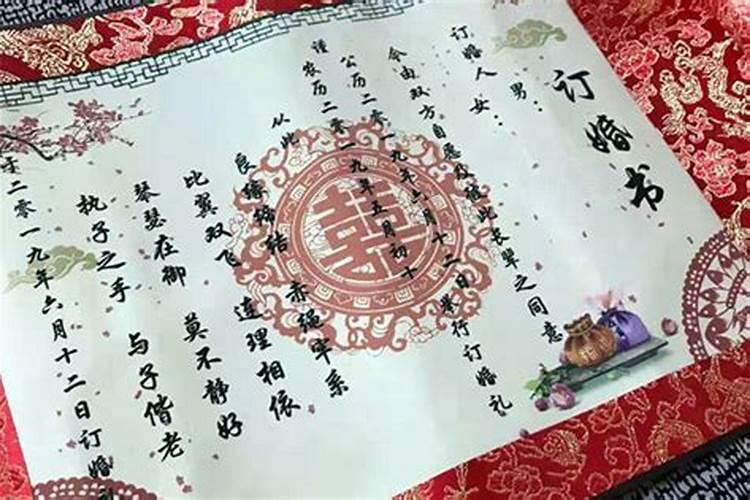 订婚书
订婚人 男：
女：
今由双方自愿及彼此长辈之同意
公历二零一九年六月十二日举行订婚礼
谨
农历二零一九年五月初十
从此
良缘缔结 赤绳牢系
比翼双飞 连理相依
琴瑟在御 莫不静好
执子之手 与子偕老
于二零一九年六月十二日订婚